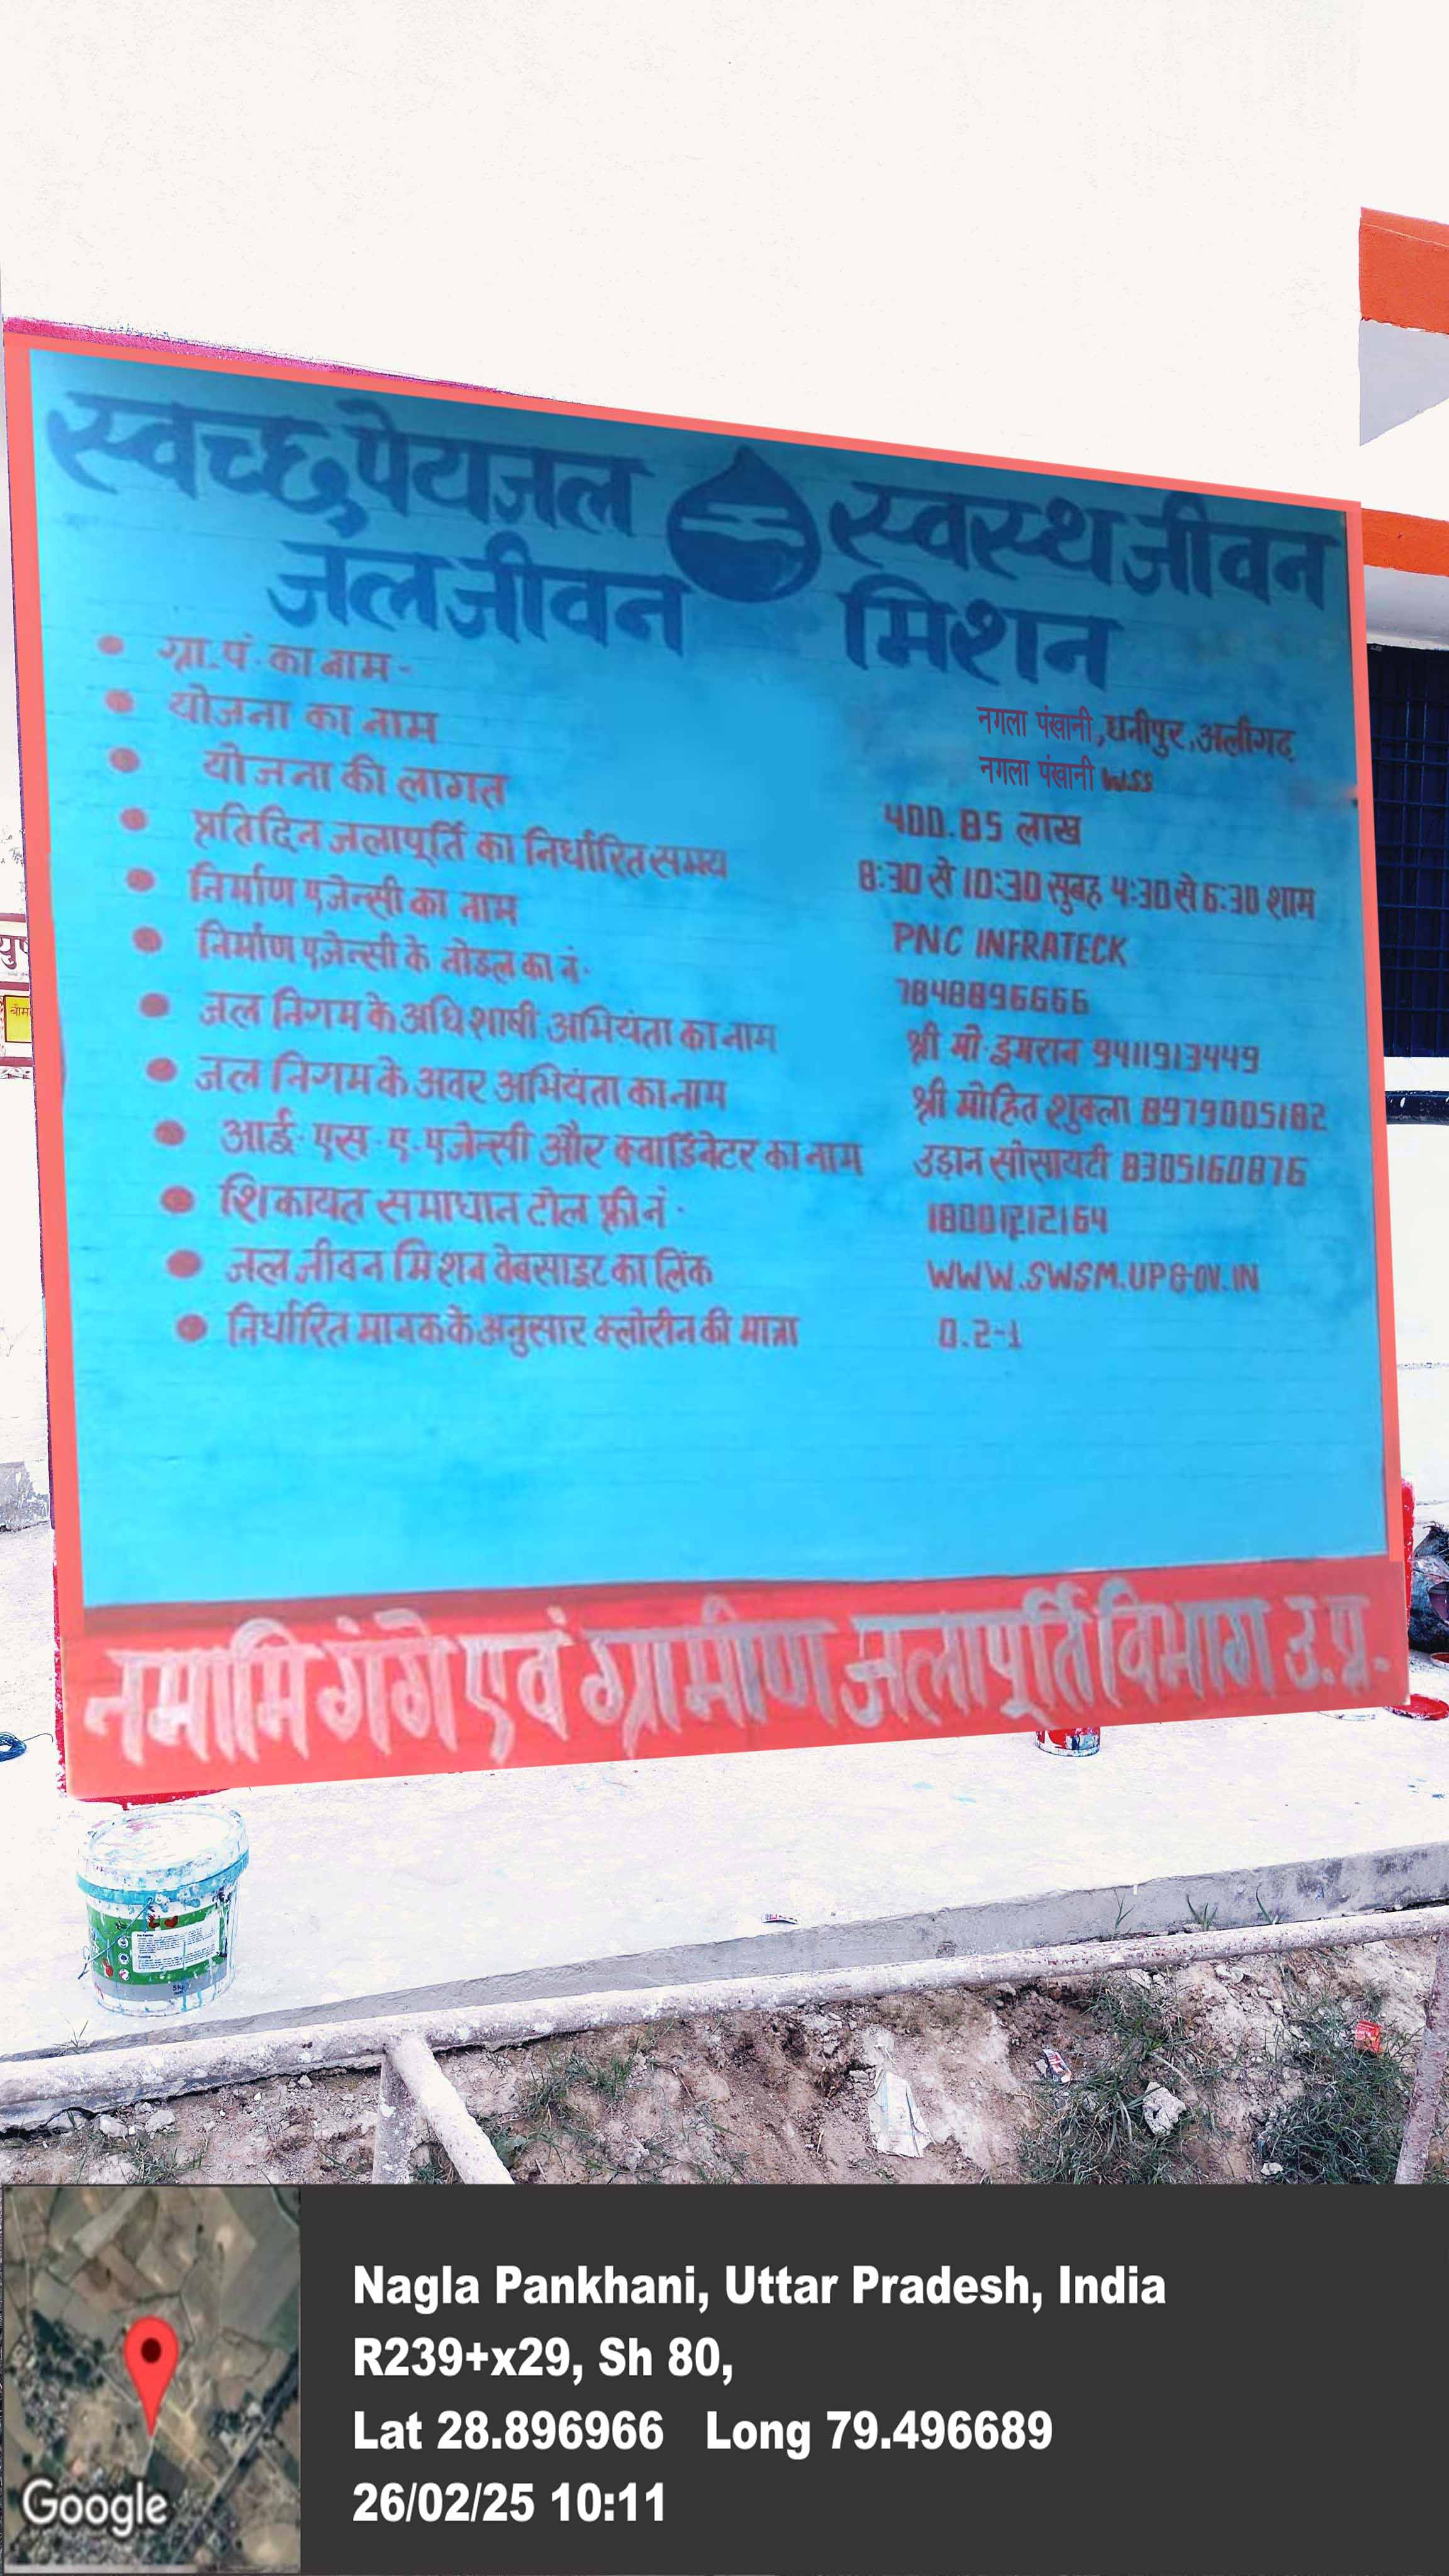 स्वच्छ पेयजल स्वस्थ जीवन
जल जीवन मिशन
• ग्रा.पं. का नाम - नगला पंखानी, धनीपुर, अलीगढ़
• योजना का नाम नगला पंखानी W.SS
• योजना की लागत 400.85 लाख
• प्रतिदिन जलापूर्ति का निर्धारित समय 8:30 से 10:30 सुबह 4:30 से 6:30 शाम
• निर्माण एजेन्सी का नाम PNC INFRATECK
• निर्माण एजेन्सी के नोडल का नं. 7848896666
• जल निगम के अधिशाषी अभियंता का नाम श्री मो. इमरान 9411913449
• जल निगम के अवर अभियंता का नाम श्री मोहित शुक्ला 8979005182
• आई. एस. ए. एजेन्सी और क्वार्डिनेटर का नाम उड़ान सोसायटी 8305160876
• शिकायत समाधान टोल फ्री नं. 18001212164
• जल जीवन मिशन वेबसाइट का लिंक WWW.SWSM.UPGOV.IN
• निर्धारित मानक के अनुसार क्लोरीन की मात्रा 0.2-1
नमामि गंगे एवं ग्रामीण जलापूर्ति विभाग उ.प्र.
Nagla Pankhani, Uttar Pradesh, India
R239+x29, Sh 80,
Lat 28.896966 Long 79.496689
26/02/25 10:11
Google